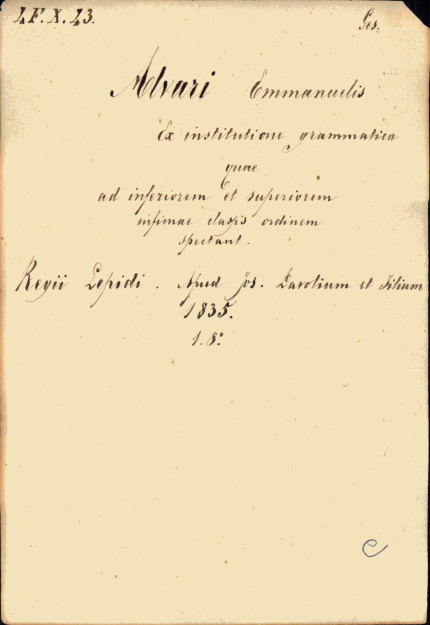 4.F.X.43.
Ges.
Alvari Emmanuelis
Ex institutione grammatica
quae
ad inferiorem et superiorem
infimae classis ordinem
spectant.
Regii Lepidi. Apud Jos. Davolium et Filium
1835.
1.8°